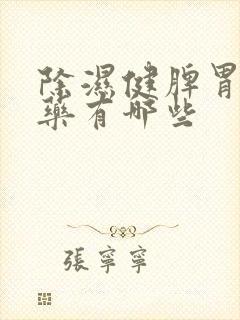 除濕健脾胃
藥有哪些
張寧寧